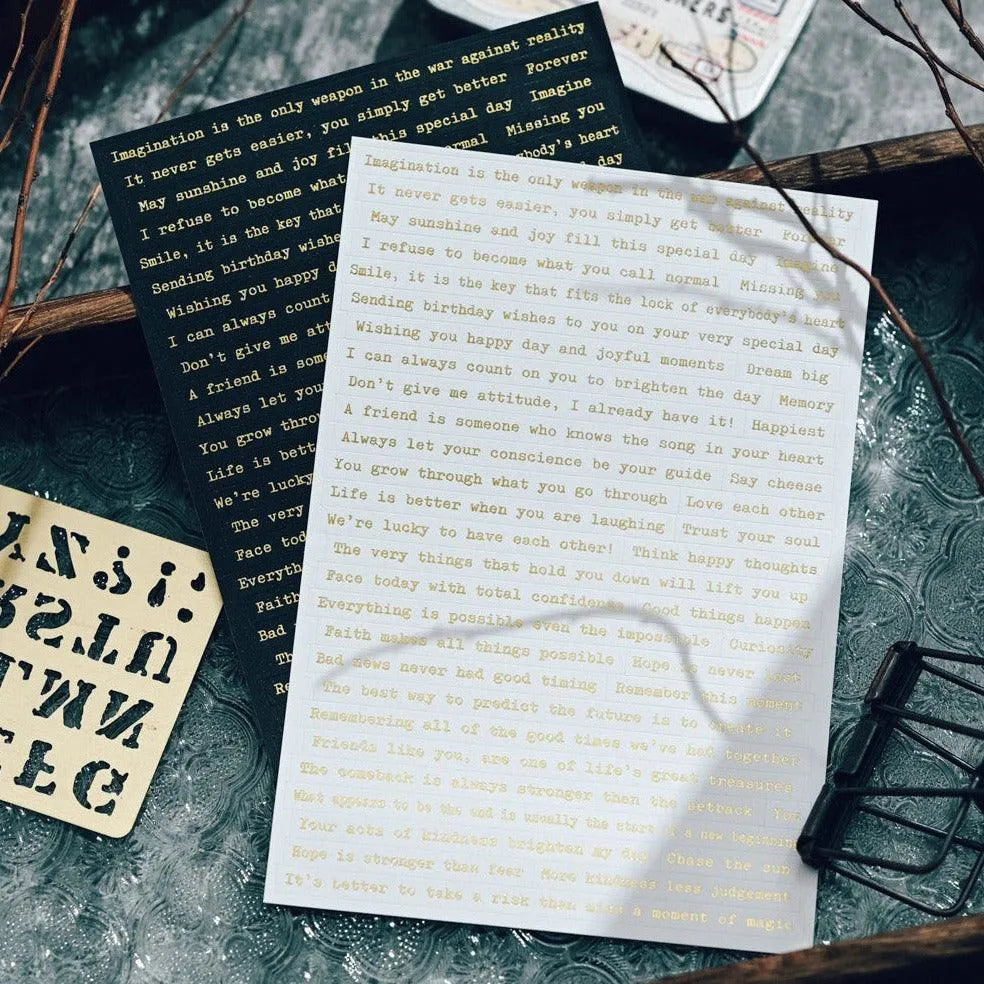 Imagination is the only weapon in the war against reality
It never gets easier, you simply get better Forever
May sunshine and joy fill this special day Imagine
I refuse to become what normal Missing you
Smile, it is the key that body's heart
Sending birthday wishes day
Wishing you happy
I can always count
Don't give me att
A friend is some
Always let your
You grow throu
Life is bett
We're lucky
The very
Face tod
Everyth
Faith
Bad
Th
Re
Imagination is the only weapon in the war against reality
It never gets easier, you simply get better Forever
May sunshine and joy fill this special day Imagine
I refuse to become what you call normal Missing you
Smile, it is the key that fits the lock of everybody's heart
Sending birthday wishes to you on your very special day
Wishing you happy day and joyful moments Dream big
I can always count on you to brighten the day Memory
Don't give me attitude, I already have it! Happiest
A friend is someone who knows the song in your heart
Always let your conscience be your guide Say cheese
You grow through what you go through Love each other
Life is better when you are laughing Trust your soul
We're lucky to have each other! Think happy thoughts
The very things that hold you down will lift you up
Face today with total confidence Good things happen
Everything is possible even the impossible Curiosity
Faith makes all things possible Hope is never lost
Bad news never had good timing Remember this moment
The best way to predict the future is to create it
Remembering all of the good times we've had together
Friends like you, are one of life's great treasures
The comeback is always stronger than the setback You
What appears to be the end is usually the start of a new beginning
Your acts of kindness brighten my day Chase the sun
Hope is stronger than fear More kindness less judgement
It's better to take a risk than miss a moment of magic